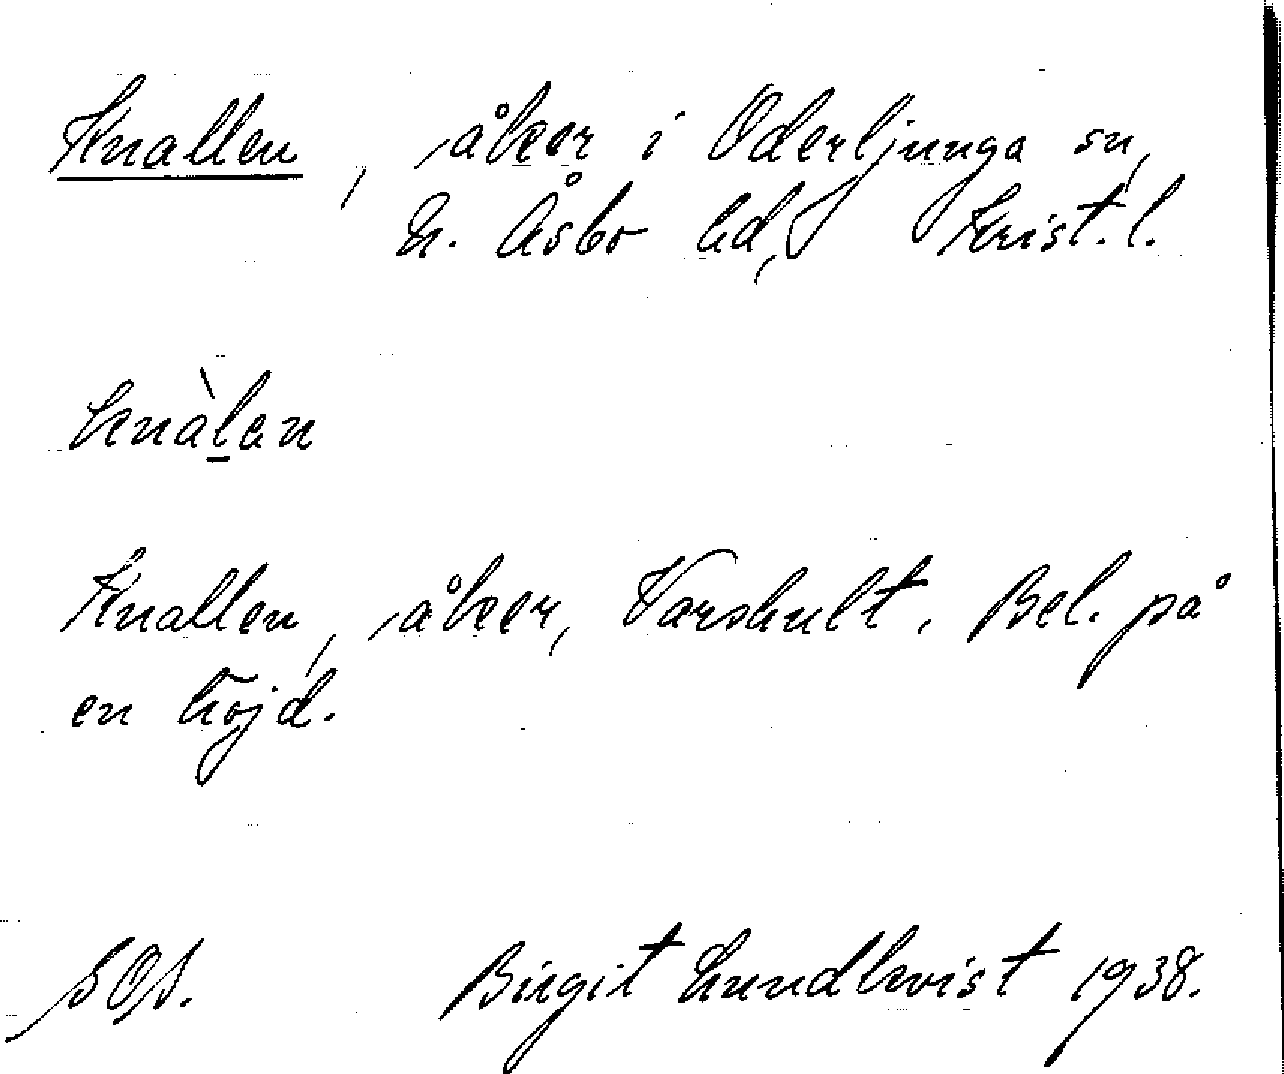 Knallen, åker i Oderljunga sn,
N. Åsbo hd, Krist. l.
knàl̲an
Knallen, åker, Varshult. Bel. på
en höjd.
SOA. Birgit Lundkvist 1938.